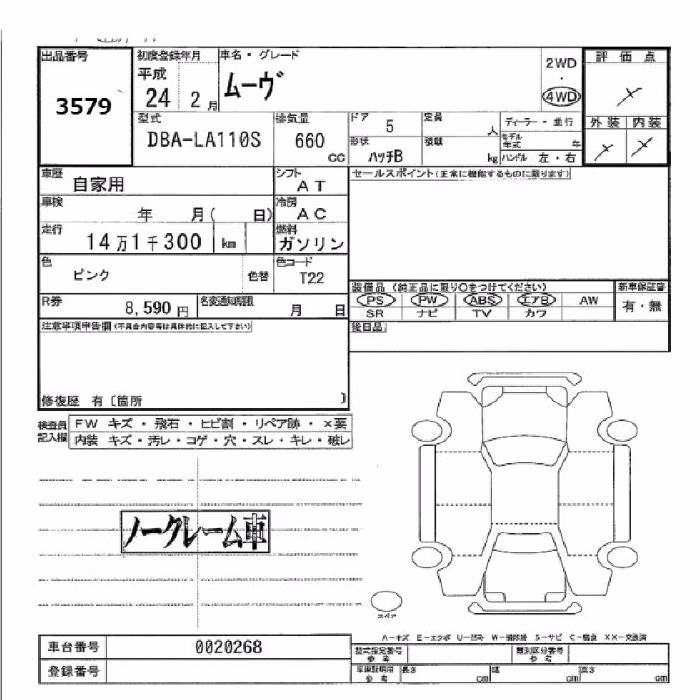 出品番号 初度登録年月 車名・グレード 2WD 評価点
3579 平成 ムーヴ ・ ×
24 2月 4WD
型式 排気量 ドア 5 定員 人 ディーラー・並行 外装 内装
DBA-LA110S 660 cc 形状 ハッチB 積載 kg モデル年式 年 ハンドル 左・右 × ×
車歴 自家用 シフト AT セールスポイント(正常に機能するものに限ります)
車検 年 月( 日) 冷房 AC
走行 14万1千300 km 燃料 ガソリン
色 ピンク 色替 色コード T22
装備品(純正品に限り○をつけてください) 新車保証書
R券 8,590円 名変通知期限 月 日 PS PW ABS エアB AW 有・無
SR ナビ TV カワ
注意事項申告欄(不具合内容等は具体的に記入して下さい) 後日品
修復歴 有〔箇所 〕
検査員記入欄 FW キズ・飛石・ヒビ割・リペア跡・×要
内装 キズ・汚レ・コゲ・穴・スレ・キレ・破レ
ノークレーム車
スペア
A-キズ E-エクボ U-凹み W-補修跡 S-サビ C-腐食 XX-交換済
車台番号 0020268 型式指定番号 参考 類別区分番号 参考
登録番号 車庫証明用 参考 長さ cm 幅 cm 高さ cm